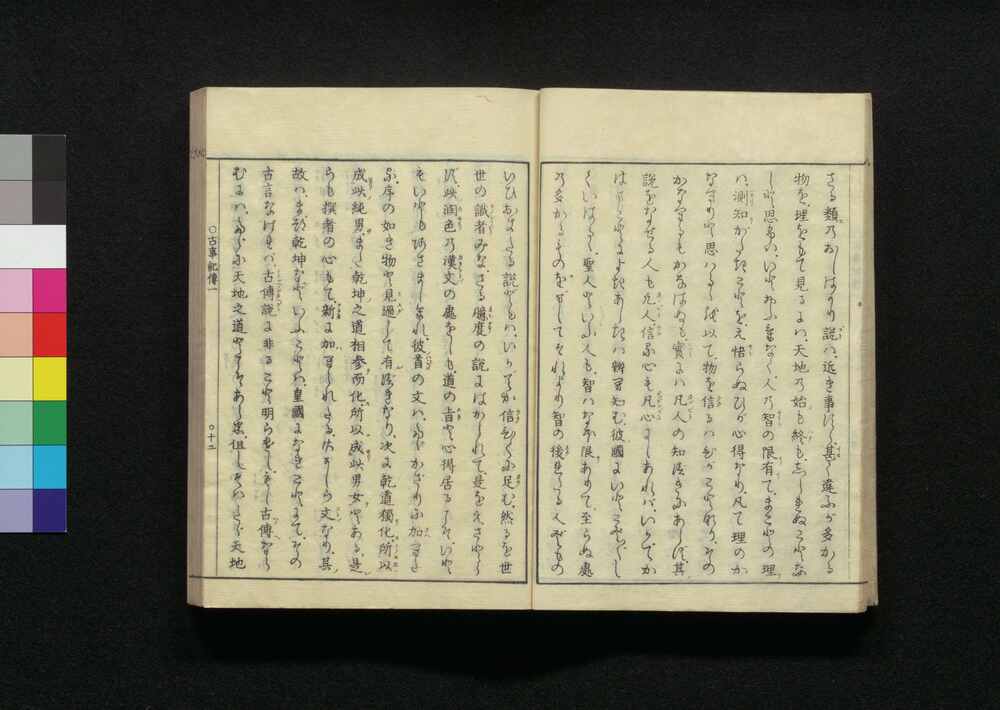 さる類のおしはかり説は、近き事にだに甚く違ふが多かる
物を、理をもて見るには、天地の始も終も、しられぬことな
しと思ふは、いとおふけなく、人の智の限有て、まことの理
は、測知がたきことを、え悟らぬひが心得なり、凡て理のか
なへりと思はるゝを以て、物を信るはひがことなり、その
かなへるもかなはぬも、實には凡人の知べきにあらず、其
説をなせる人も凡人、信る心も凡心にしあれば、いかでか
はまことによきあしきは辨へ知む、彼國にいとこちたく
いはるゝ、聖人といふ人も、智はなほ限ありて、至らぬ處
の多かるものを、ましてそれより智の後れたる人どもの
いひおける説どもは、いかでか信るに足む、然るを世
世の識者みな、さる臆度の説にはかられて、是をえさとら
ず、此潤色の漢文の處をしも、道の旨と心得居るこそ、いと
もいともあさましけれ、彼首の文は、たゞかざりに加へた
る、序の如き物と見過して有べきなり、次に乾道獨化、所以
成此純男、また乾坤之道相参而化、所以成此男女とある、是
らも撰者の心もて、新に加へられたる、かざりの文なり、其
故は、まづ乾坤などいふことは、皇國になきことにて、その
古言なければ、古傳説に非ること明らけし、もし古傳なら
むには、たゞに天地之道とこそあるべけれ、但しそはたゞ天地
○古事記傳一
○十二